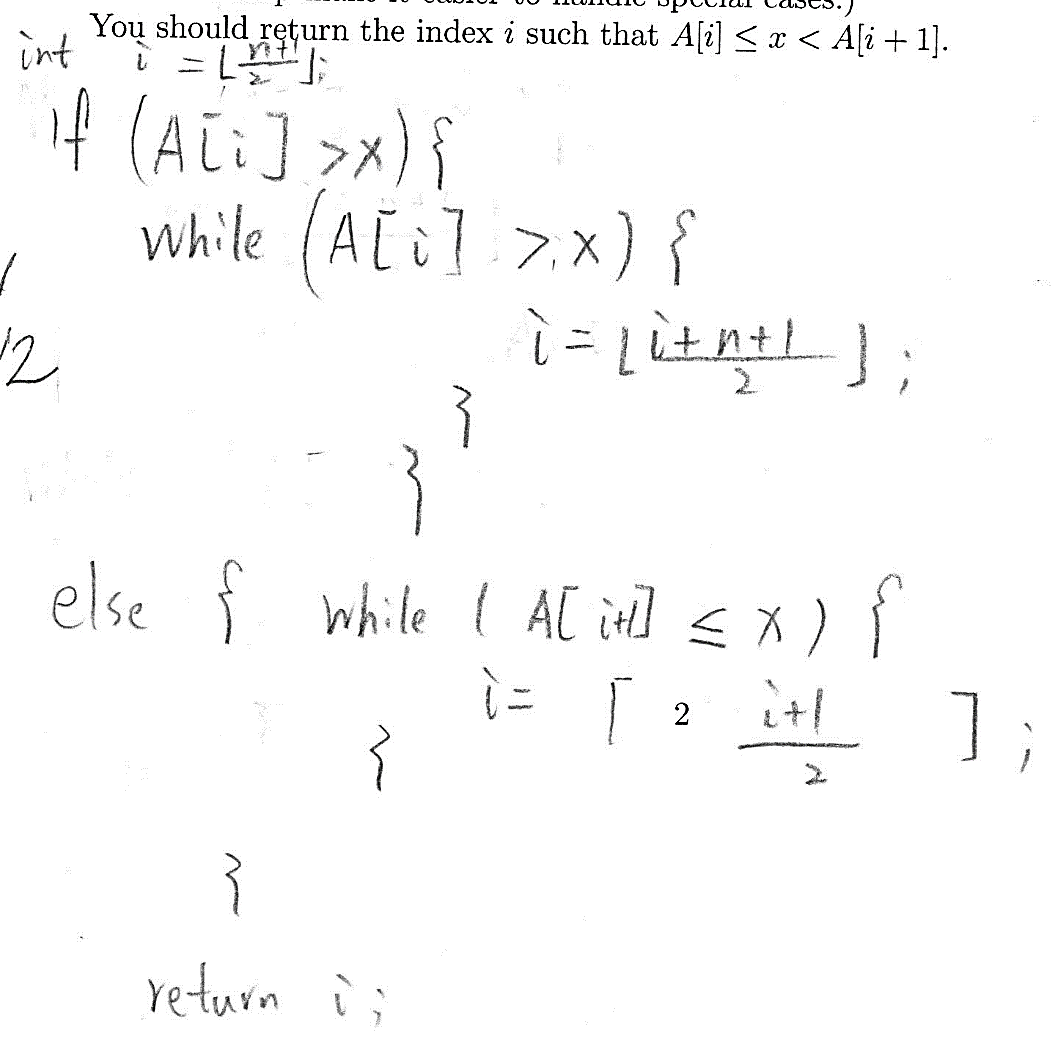 to handle special cases.)
You should return the index i such that A[i] ≤ x < A[i + 1].
int i = ⌊(n+1)/2⌋;
if (A[i] >x) {
while (A[i] >x) {
i = ⌊(i+n+1)/2⌋;
/
12
}
}
else { while ( A[i+1] ≤ x) {
i = ⌈ 2 (i+1)/2 ⌉;
}
}
return i;